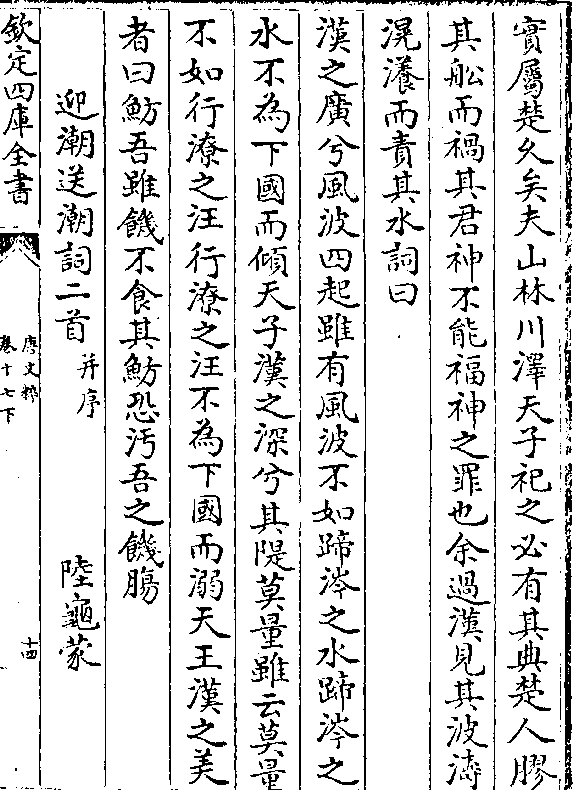 實屬楚久矣夫山林川澤天子祀之必有其典楚人膠
其舩而禍其君神不能福神之罪也余過漢見其波濤
滉瀁而責其水詞曰
漢之廣兮風波四起雖有風波不如蹄涔之水蹄涔之
水不為下國而傾天子漢之深兮其隄莫量雖云莫量
不如行潦之汪行潦之汪不為下國而溺天王漢之美
者曰魴吾雖饑不食其魴恐汚吾之饑腸
迎潮送潮詞二首 并序 陸龜蒙
欽定四庫全書
唐文粹
卷十七下
十四